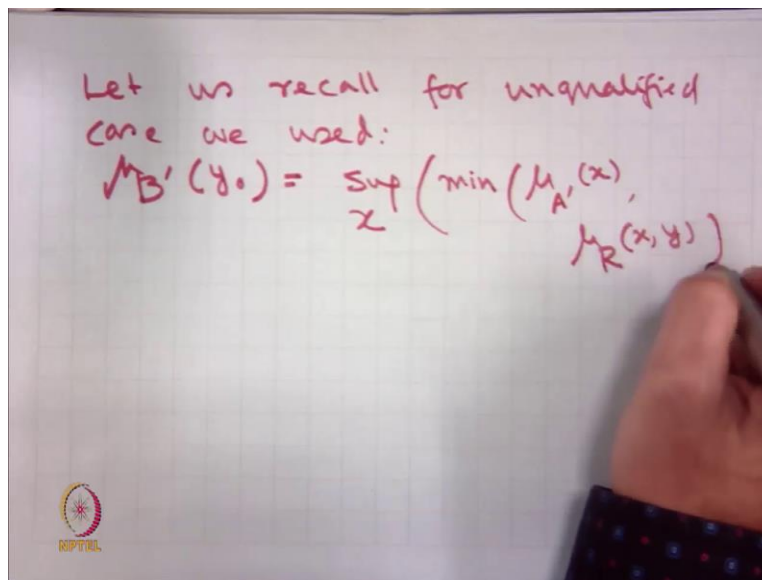 Let us recall for unqualified
case we used:
μ_B'(y.) = sup_x (min(μ_A'(x),
μ_R(x, y))
NPTEL